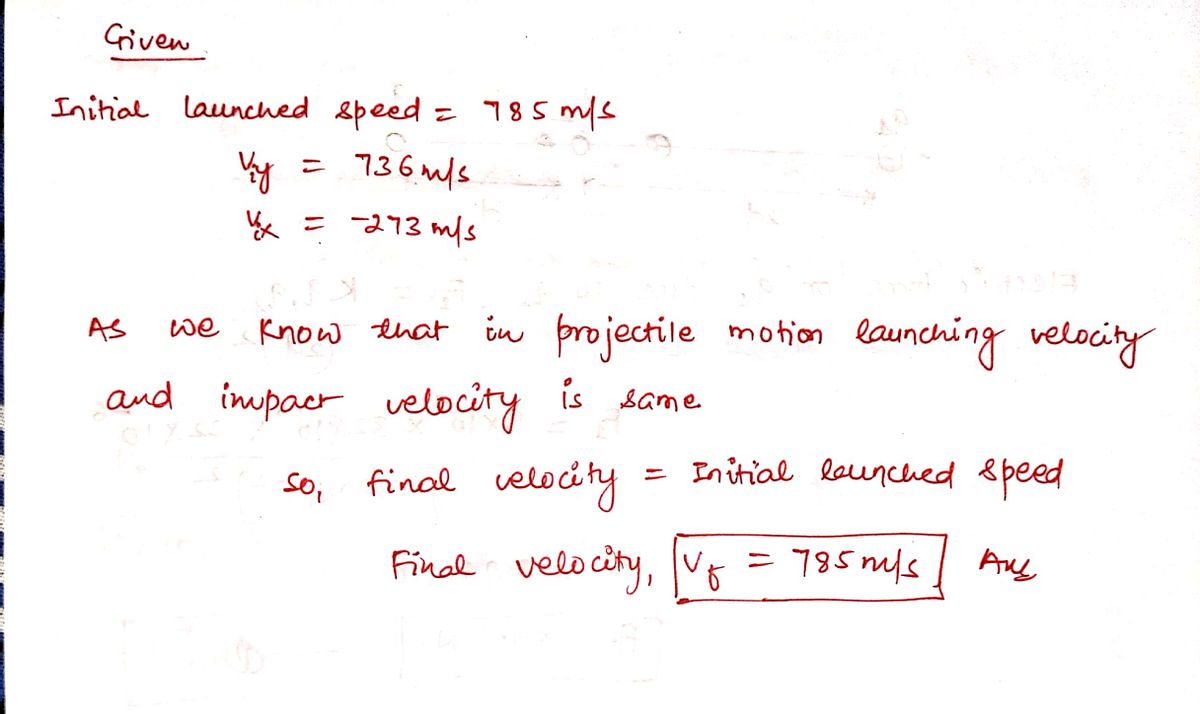 Given
Initial launched speed = 785 m/s
Viy = 736 m/s
Vix = -273 m/s
As we know that in projectile motion launching velocity
and impact velocity is same
so, final velocity = Initial launched speed
Final velocity, Vf = 785 m/s Ans